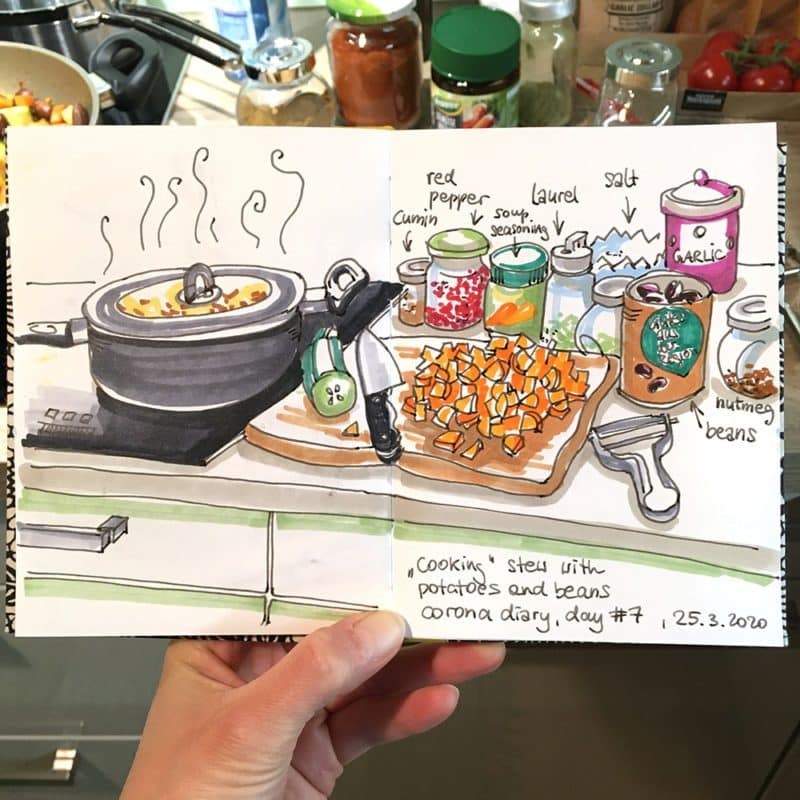 red
pepper
Cumin
soup
seasoning
laurel
salt
GARLIC
nutmeg
beans
„Cooking" stew with
potatoes and beans
corona diary, day #7 , 25.3.2020